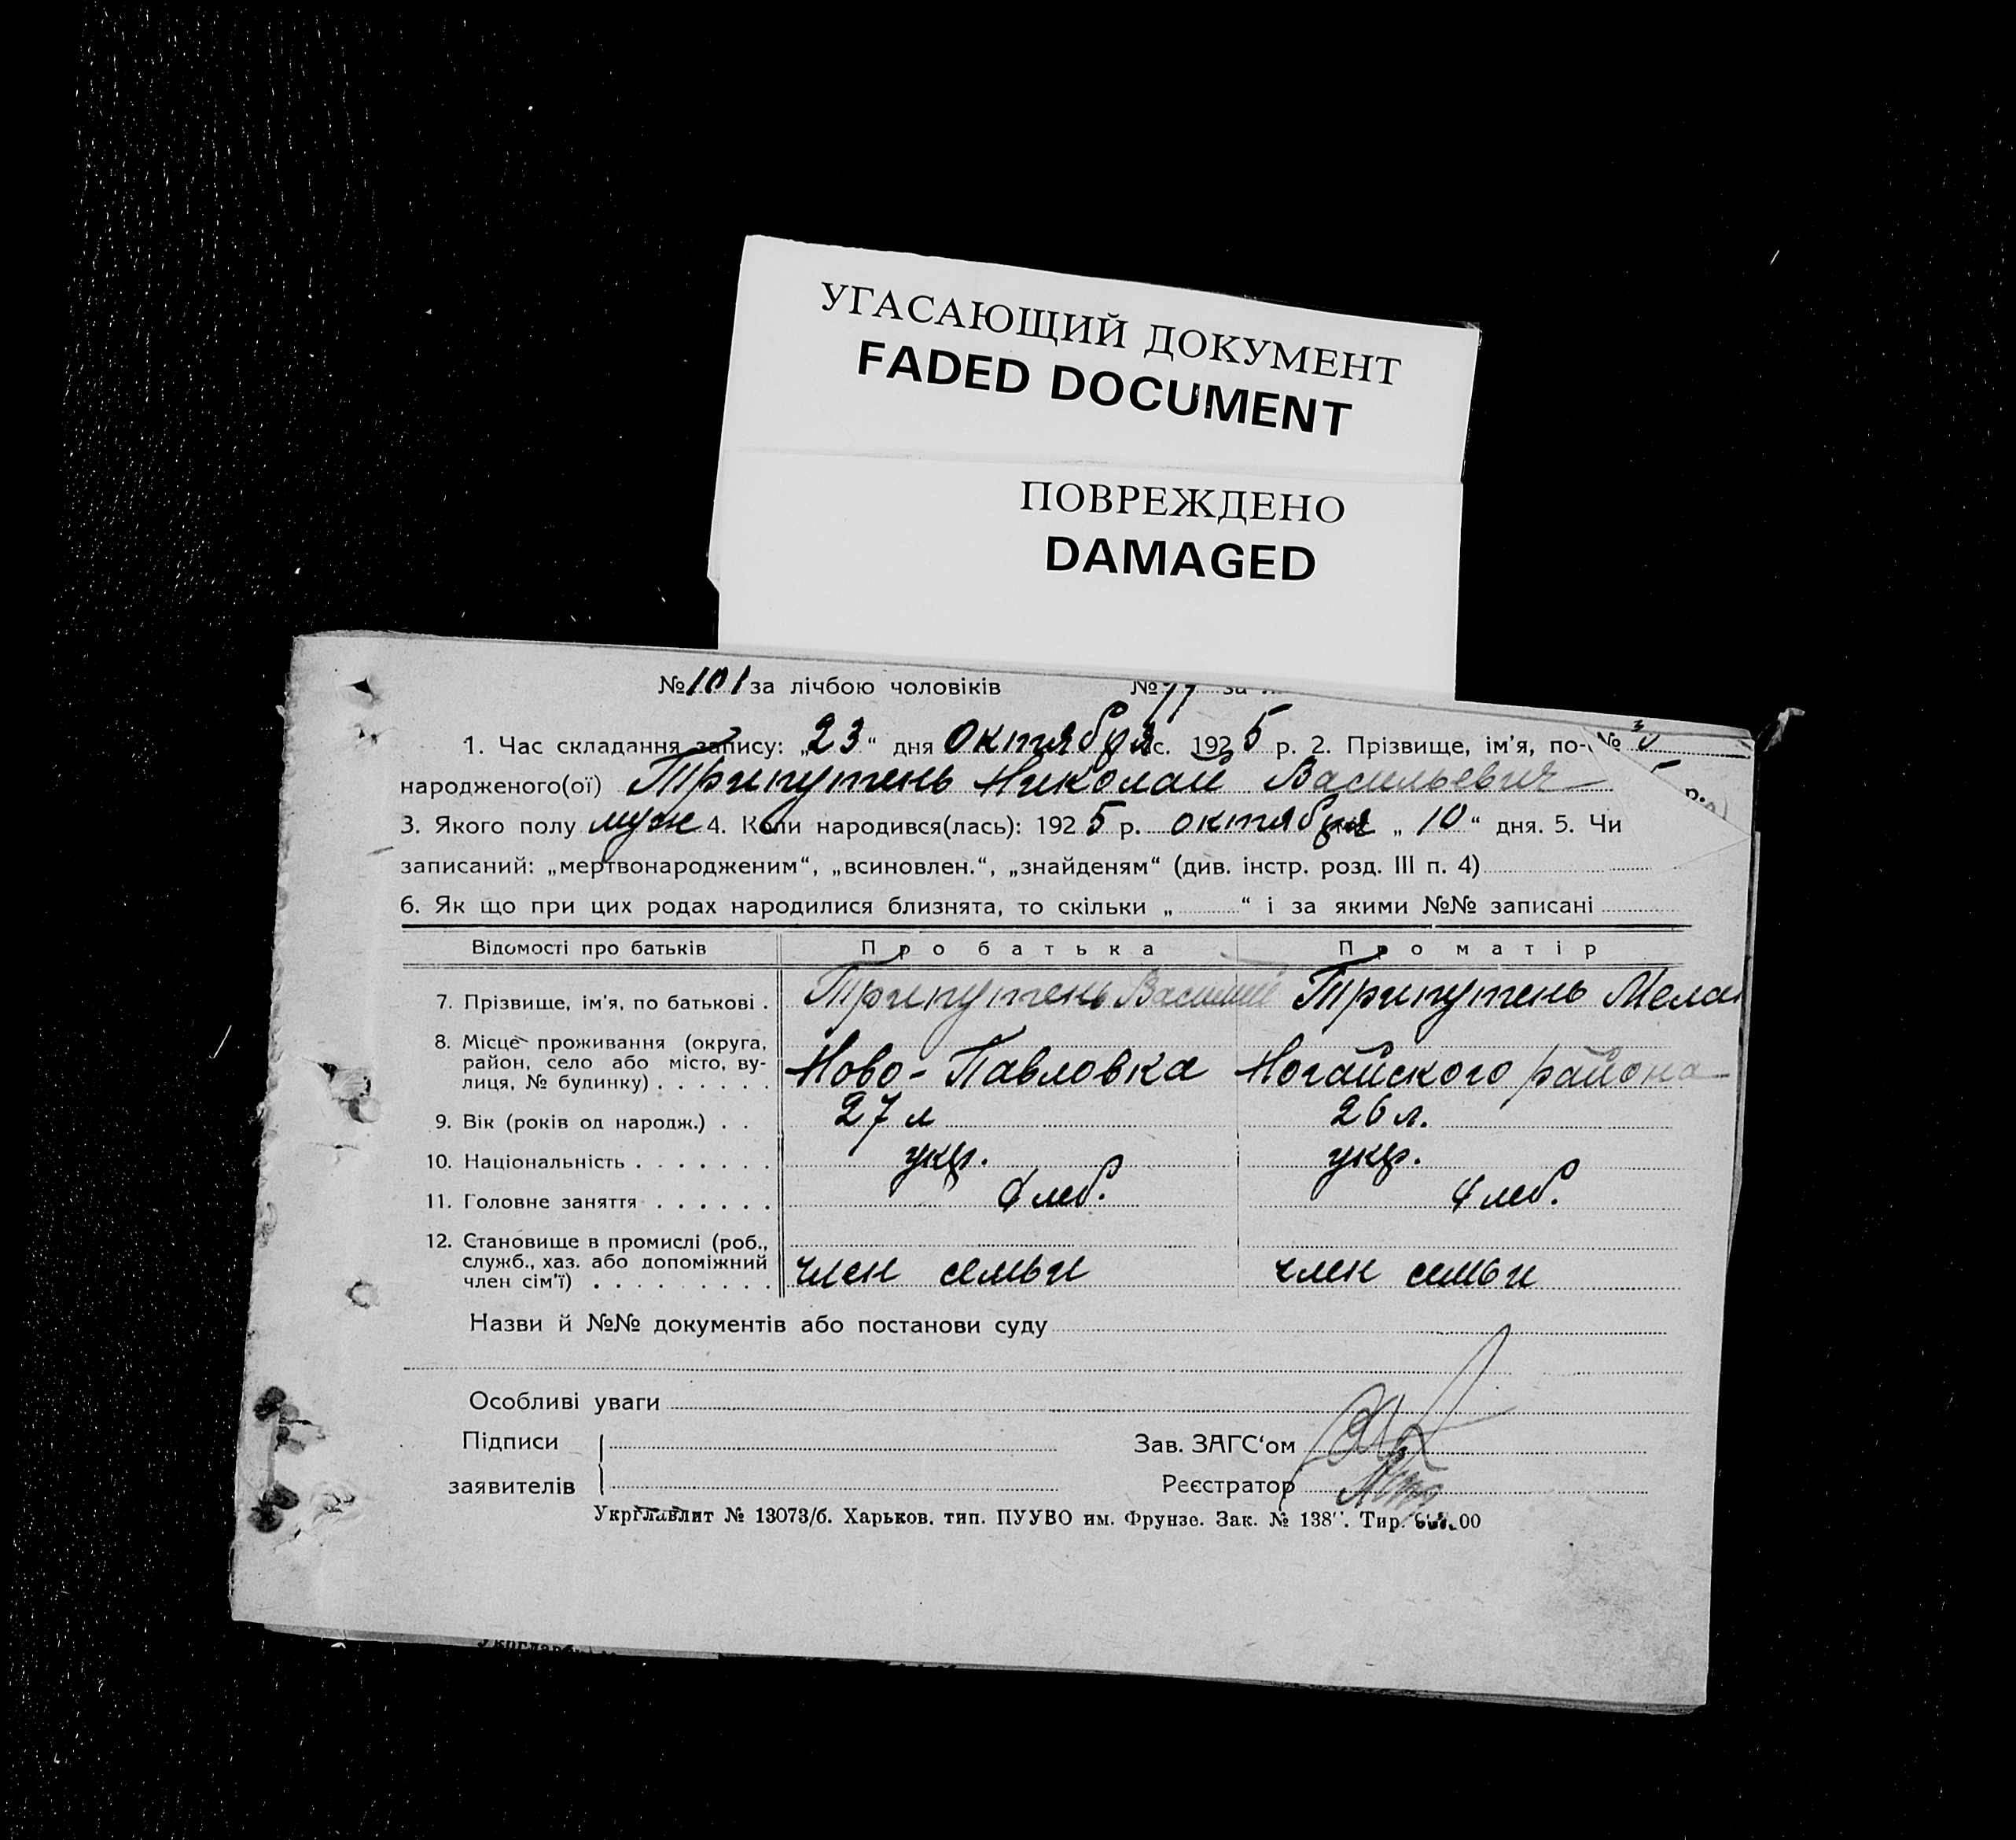 УГАСАЮЩИЙ ДОКУМЕНТ
FADED DOCUMENT
ПОВРЕЖДЕНО
DAMAGED
№ 101 за лічбою чоловіків № 77 за
1. Час складання запису: „23“ дня октября с. 1925 р. 2. Прізвище, ім'я, по- №
народженого(ої) Трипутень Николай Васильевич р.
3. Якого полу муж 4. Коли народився(лась): 1925 р. октября „10“ дня. 5. Чи
записаний: „мертвонародженим“, „всиновлен.“, „знайденям“ (див. інстр. розд. III п. 4)
6. Як що при цих родах народилися близнята, то скільки „ “ і за якими №№ записані
Відомості про батьків Про батька Про матір
7. Прізвище, ім'я, по батькові . Трипутень Василий Трипутень Мела
8. Місце проживання (округа,
район, село або місто, ву-
лиця, № будинку) . . . . . . Ново-Павловка Ногайского района
9. Вік (років од народж.) . . 27 л 26 л.
10. Національність . . . . . . . укр. укр.
11. Головне заняття . . . . . . хлеб. хлеб.
12. Становище в промислі (роб.,
служб., хаз. або допоміжний
член сім'ї) . . . . . . . . . член семьи член семьи
Назви й №№ документів або постанови суду
Особливі уваги
Підписи Зав. ЗАГС‘ом
заявителів Реєстратор
Укрглавлит № 13073/б. Харьков. тип. ПУУВО им. Фрунзе. Зак. № 138 . Тир. 00